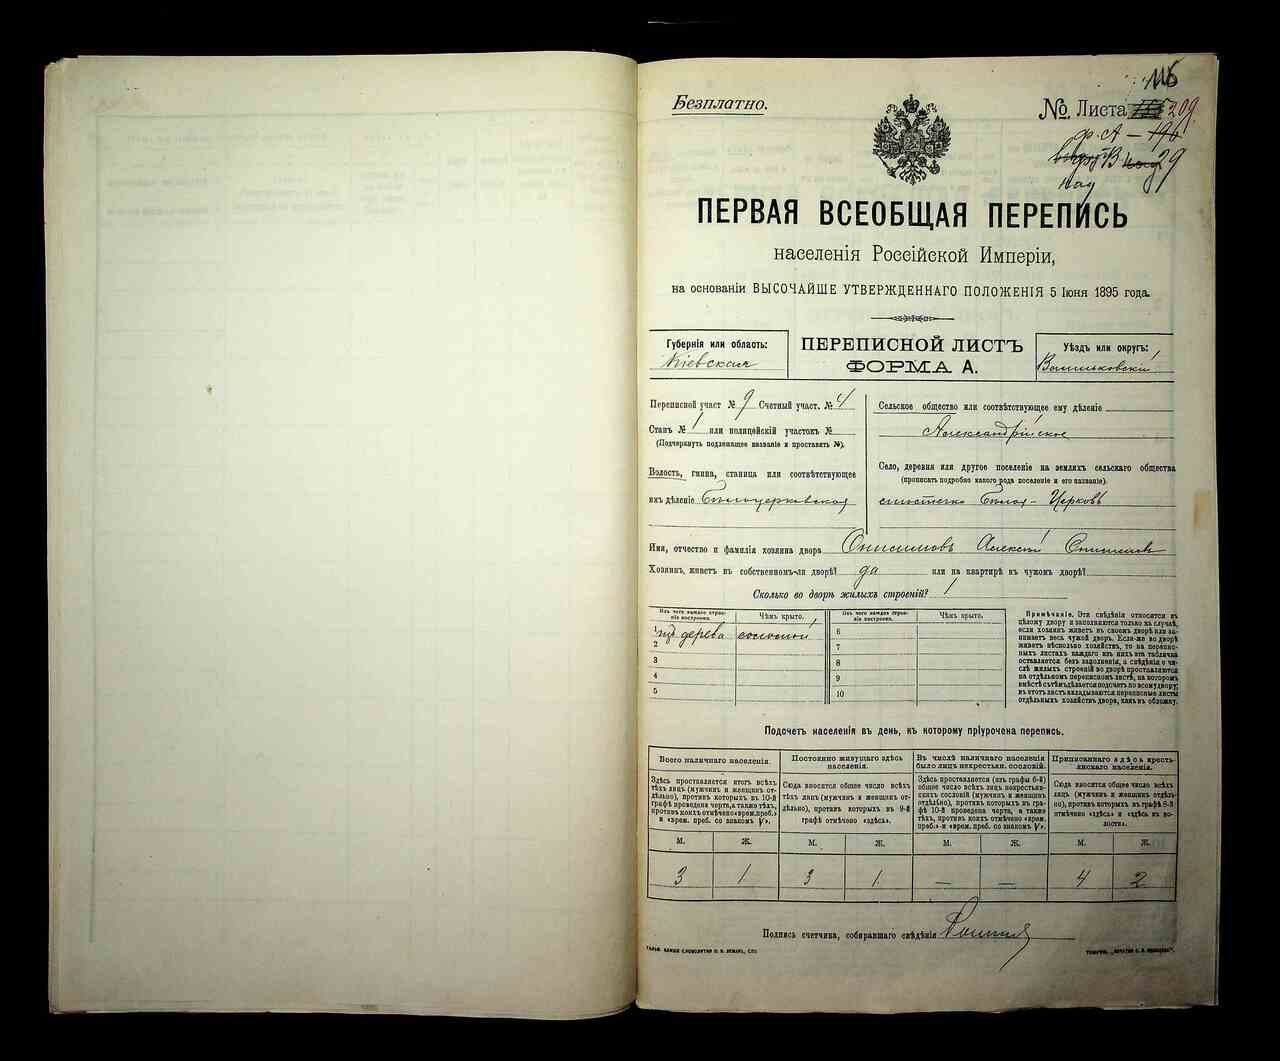 116
Безплатно.
№. Листа 209
ф. А — 196
29
ПЕРВАЯ ВСЕОБЩАЯ ПЕРЕПИСЬ
населенія Россійской Имперіи,
на основаніи ВЫСОЧАЙШЕ УТВЕРЖДЕННАГО ПОЛОЖЕНІЯ 5 Іюня 1895 года.
Губернія или область:
Кіевская
ПЕРЕПИСНОЙ ЛИСТЪ
ФОРМА А.
Уѣздъ или округъ:
Васильковскій
Переписной участ № 9 Счетный участ. № 4
Станъ № 1 или полицейскій участокъ №
(Подчеркнуть подлежащее названіе и проставить №).
Волость, гмина, станица или соотвѣтствующее
ихъ дѣленіе Бѣлоцерковская
Сельское общество или соотвѣтствующее ему дѣленіе
Александрійское
Село, деревня или другое поселеніе на земляхъ сельскаго общества
(прописать подробно какого рода поселеніе и его названіе).
мѣстечко Бѣлая-Церковь
Имя, отчество и фамилія хозяина двора Онисимовъ Алексѣй
Хозяинъ, живетъ въ собственномъ-ли дворѣ? да или на квартирѣ въ чужомъ дворѣ?
Сколько во дворѣ жилыхъ строеній? 1
Изъ чего каждое строеніе построено.
Чѣмъ крыто.
Изъ чего каждое строеніе построено.
Чѣмъ крыто.
1 изъ дерева соломой
2
3
4
5
6
7
8
9
10
Примѣчаніе. Эти свѣдѣнія относятся къ
цѣлому двору и заполняются только въ случаѣ,
если хозяинъ живетъ въ своемъ дворѣ или занимаетъ
весь чужой дворъ. Если-же во дворѣ
живетъ нѣсколько хозяйствъ, то на переписныхъ
листахъ каждаго изъ нихъ эта табличка
оставляется безъ заполненія, а свѣдѣнія о числѣ
жилыхъ строеній во дворѣ проставляются
на отдѣльномъ переписномъ листѣ, на которомъ
вмѣстѣ съ тѣмъ дѣлается подсчетъ по всему двору;
въ этотъ листъ вкладываются переписные листы
отдѣльныхъ хозяйствъ двора, какъ въ обложку.
Подсчетъ населенія въ день, къ которому пріурочена перепись.
Всего наличнаго населенія.
Здѣсь проставляется итогъ всѣхъ
тѣхъ лицъ (мужчинъ и женщинъ отдѣльно),
противъ которыхъ въ 10-й
графѣ проведена черта, а также тѣхъ,
противъ коихъ отмѣчено «врем. преб.»
и «врем. преб. со знакомъ V».
Постоянно живущаго здѣсь
населенія.
Сюда вносится общее число всѣхъ
тѣхъ лицъ (мужчинъ и женщинъ отдѣльно),
противъ которыхъ въ 9-й
графѣ отмѣчено «здѣсь».
Въ числѣ наличнаго населенія
было лицъ некрестьян. сословій.
Здѣсь проставляется (изъ графы 6-й)
общее число всѣхъ лицъ некрестьянскихъ
сословій (мужчинъ и женщинъ
отдѣльно), противъ которыхъ въ графѣ
10-й проведена черта, а также
тѣхъ, противъ коихъ отмѣчено «врем.
преб.» и «врем. преб. со знакомъ V».
Приписаннаго здѣсь крестьянскаго
населенія.
Сюда вносится общее число всѣхъ
лицъ (мужчинъ и женщинъ отдѣльно),
противъ которыхъ въ графѣ 8-й
отмѣчено «здѣсь» и «здѣсь въ волости».
М. Ж. М. Ж. М. Ж. М. Ж.
3 1 3 1 — — 4 2
Подпись счетчика, собиравшаго свѣдѣнія